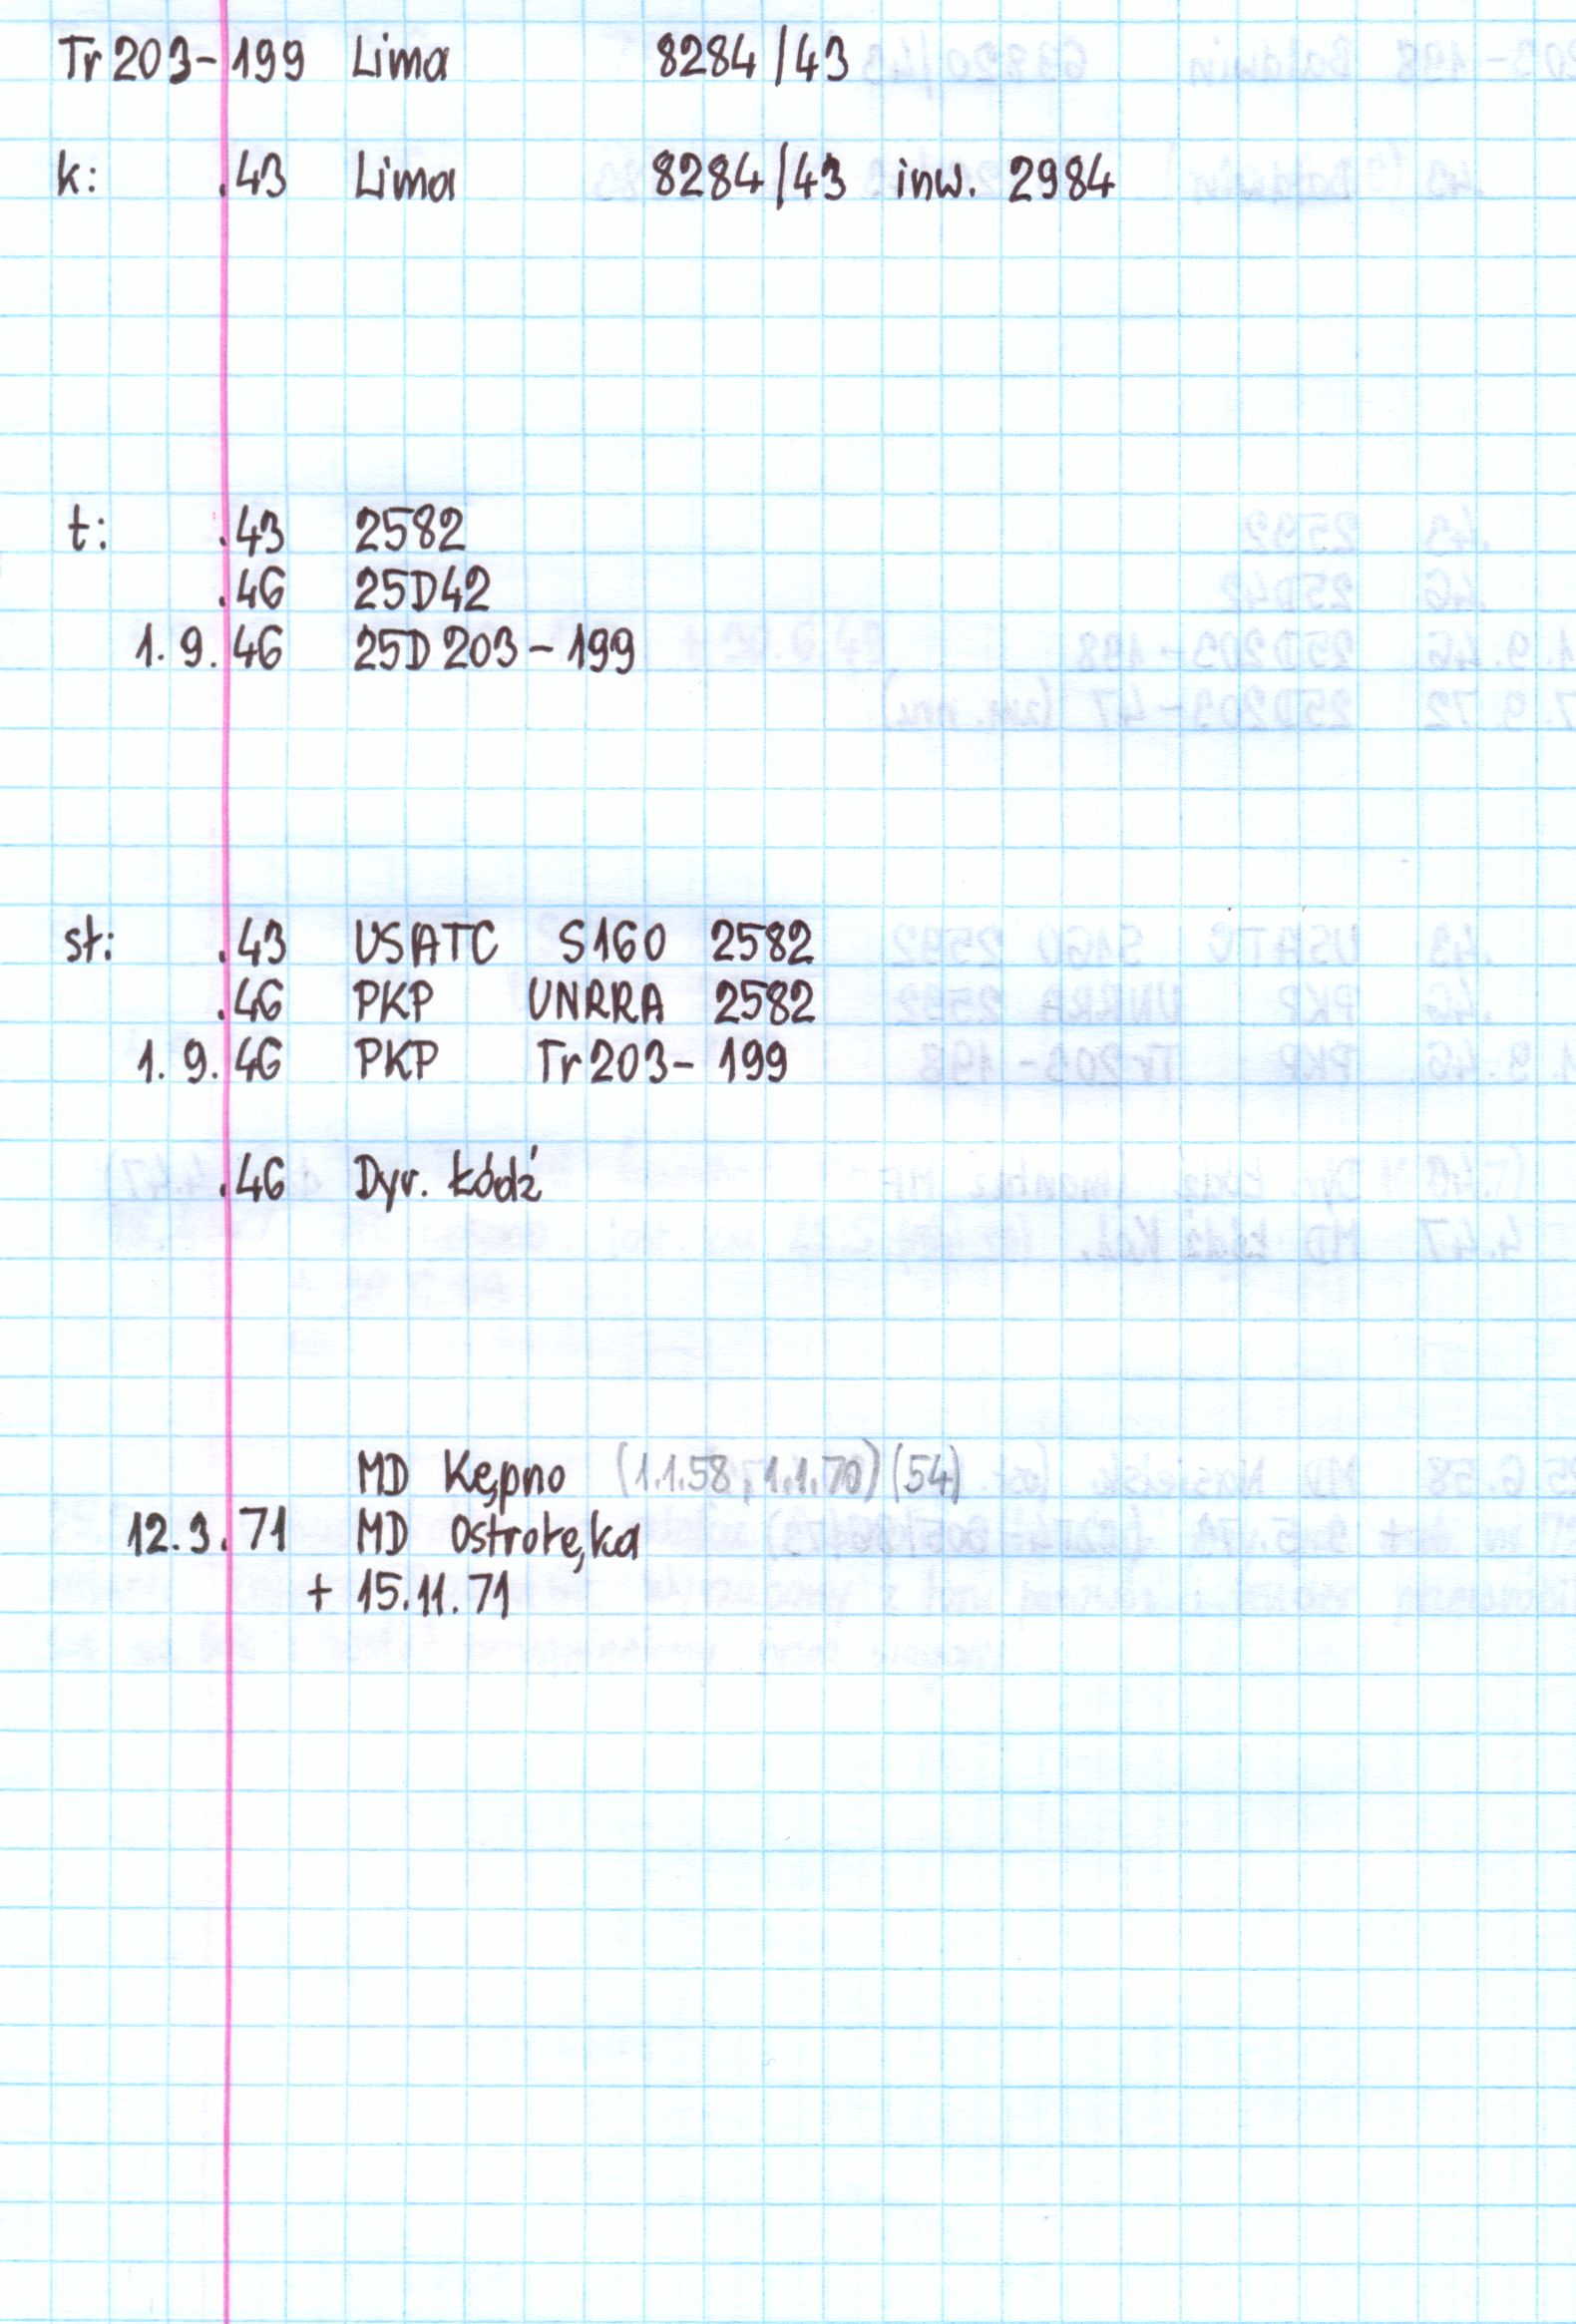 Tr203-199 Lima 8284/43
k: .43 Lima 8284/43 inw. 2984
t: .43 2582
.46 25D42
1.9.46 25D203-199
st: .43 USATC S160 2582
.46 PKP UNRRA 2582
1.9.46 PKP Tr203-199
.46 Dyr. Łódź
MD Kępno (1.1.58, 1.1.70) (54)
12.3.71 MD Ostrołęka
+ 15.11.71